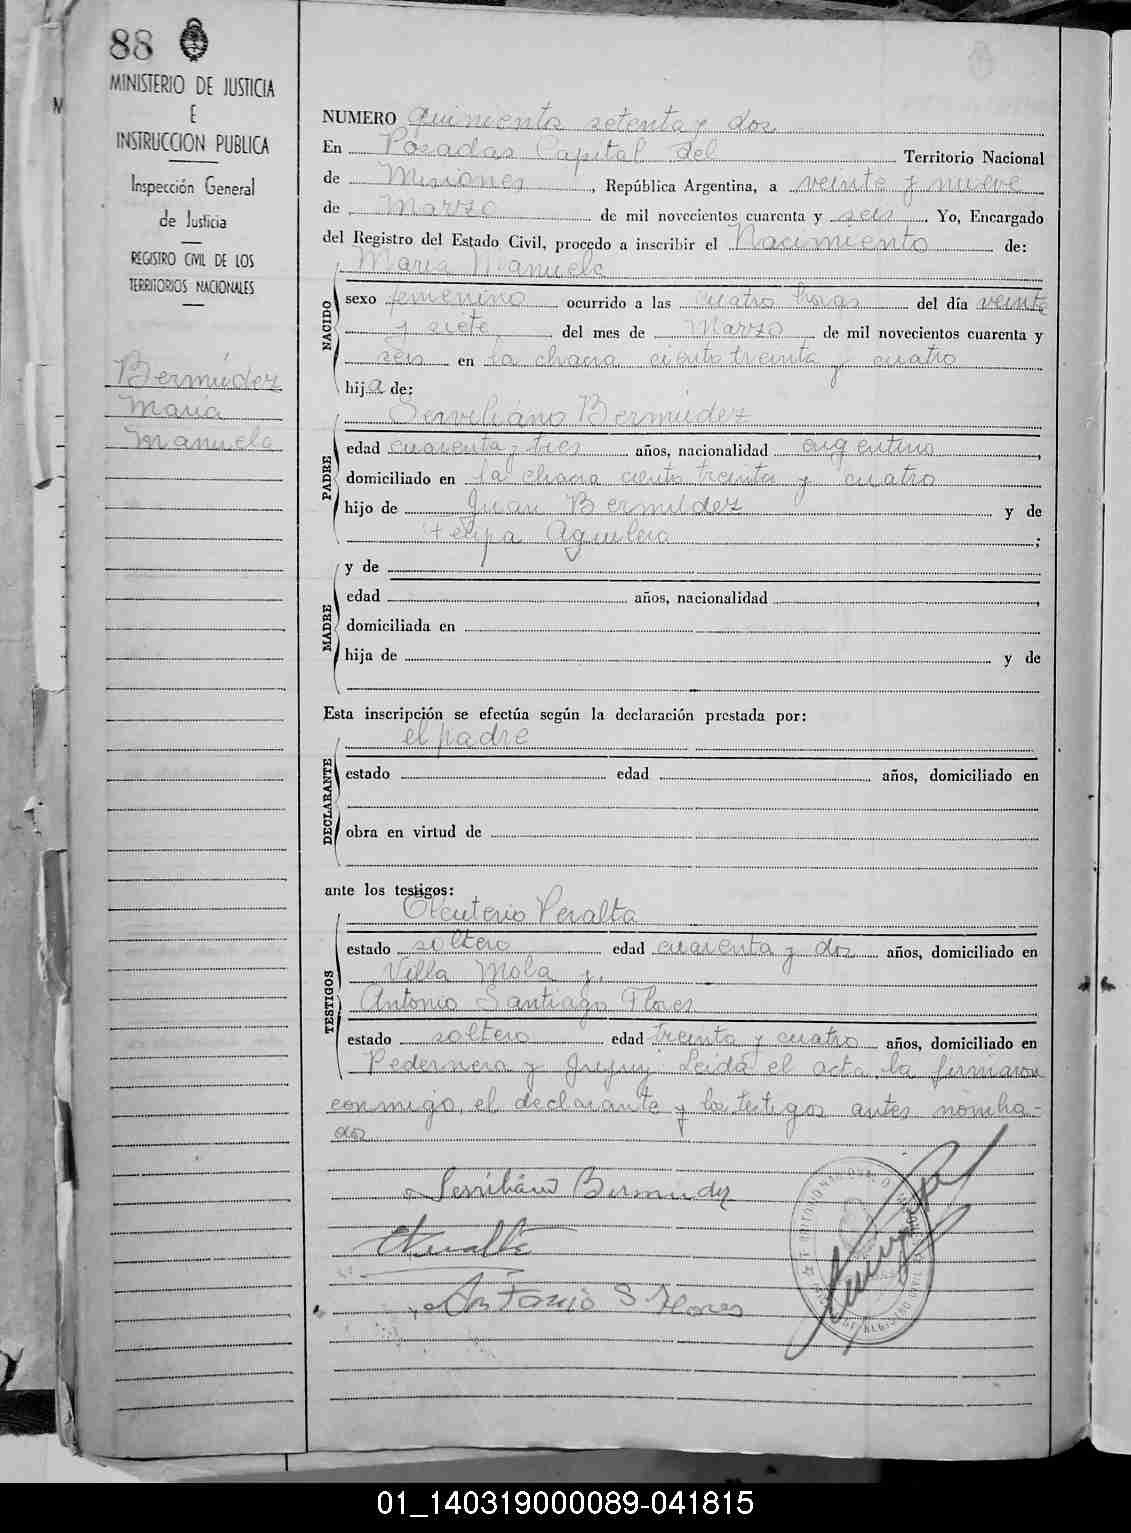 88
MINISTERIO DE JUSTICIA
E
INSTRUCCION PUBLICA
Inspección General
de Justicia
REGISTRO CIVIL DE LOS
TERRITORIOS NACIONALES
Bermúdez
Maria
Manuela
NUMERO quinientos setenta y dos
En Posadas Capital del Territorio Nacional
de Misiones, República Argentina, a veinte y nueve
de Marzo de mil novecientos cuarenta y seis. Yo, Encargado
del Registro del Estado Civil, procedo a inscribir el Nacimiento de:
NACIDO
Maria Manuela
sexo femenino ocurrido a las cuatro horas del día veinte
y siete, del mes de Marzo de mil novecientos cuarenta y
seis en la chacra ciento treinta y cuatro
hija de:
PADRE
Serviliano Bermúdez
edad cuarenta y tres años, nacionalidad argentino,
domiciliado en la chacra ciento treinta y cuatro
hijo de Juan Bermudez y de
Felipa Aguilera;
MADRE
y de
edad años, nacionalidad,
domiciliada en
hija de y de
Esta inscripción se efectúa según la declaración prestada por:
DECLARANTE
el padre
estado edad años, domiciliado en
obra en virtud de
ante los testigos:
TESTIGOS
Eleuterio Peralta
estado soltero edad cuarenta y dos años, domiciliado en
Villa Mola y,
Antonio Santiago Flores
estado soltero edad treinta y cuatro años, domiciliado en
Pedernera y Jujuy Leida el acta, la firmaron
conmigo, el declarante y los testigos antes nombra-
dos
Serviliano Bermudez
EPeralta
Antonio S Flores
01_140319000089-041815